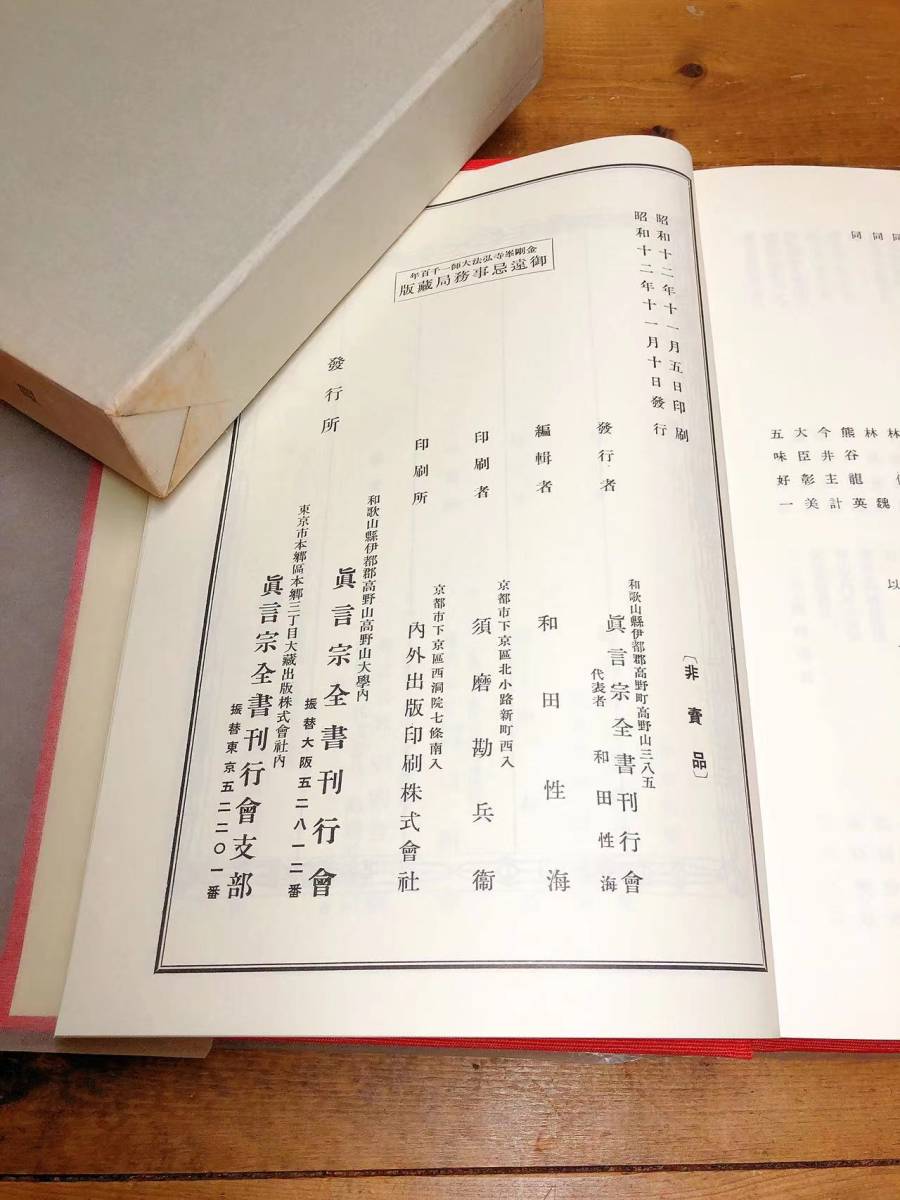 昭和十二年十一月五日印刷
昭和十二年十一月十日發行
〔非賣品〕
發行者
和歌山縣伊都郡高野町高野山三八五
眞言宗全書刊行會
代表者 和田性海
編輯者
和田性海
印刷者
京都市下京區北小路新町西入
須磨勘兵衞
印刷所
京都市下京區西洞院七條南入
內外出版印刷株式會社
金剛峯寺弘法大師一千百年
御遠忌事務局藏版
發行所
和歌山縣伊都郡高野山高野山大學內
眞言宗全書刊行會
振替大阪五二八一二番
東京市本鄕區本鄕三丁目大藏出版株式會社內
眞言宗全書刊行會支部
振替東京五二二〇一番
同
同
同
林
林
熊谷
今井龍魏
大臣主彰英
五味好一
以